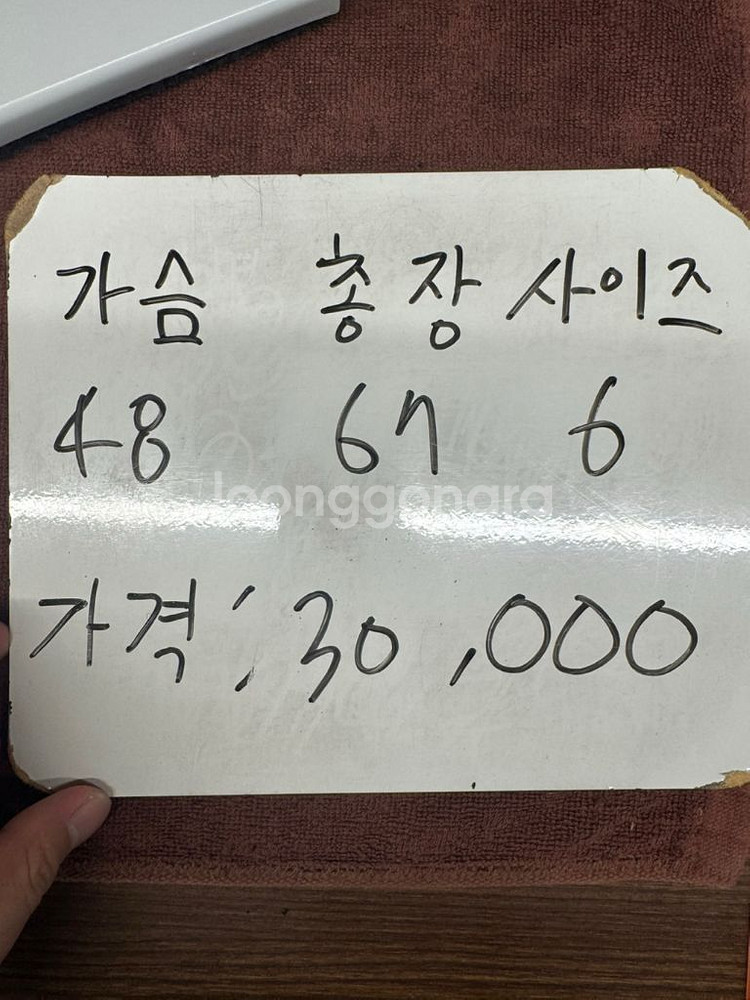 가슴 총장 사이즈
48 67 6
joonggonara
가격: 30,000